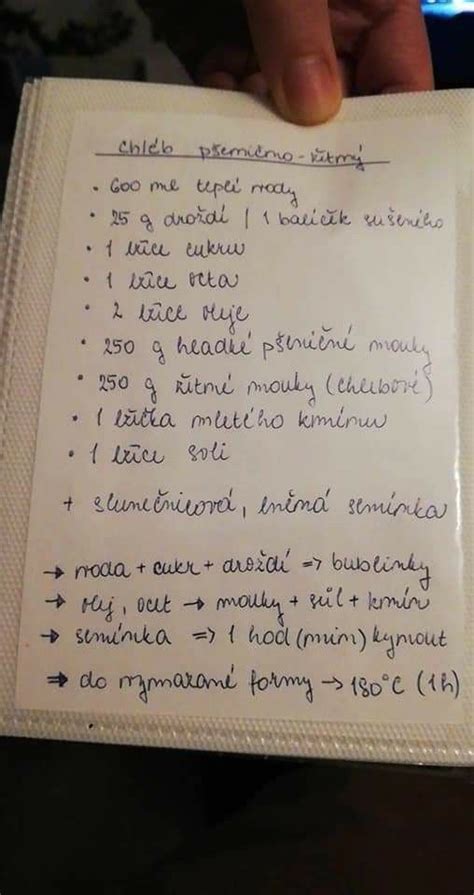 chléb pšenično-žitný
• 600 ml teplé vody
• 25 g droždí / 1 balíčik sušeného
• 1 lžíce cukru
• 1 lžíce octa
• 2 lžíce oleje
• 250 g hladké pšeničné mouky
• 250 g žitné mouky (chlebové)
• 1 lžička mletého kmínu
• 1 lžíce soli
+ slunečnicová, lněná semínka
→ voda + cukr + droždí => bublinky
→ olej, ocet → mouky + sůl + kmín
→ semínka => 1 hod (min) kynout
⇒ do vymazané formy → 180°C (1h)